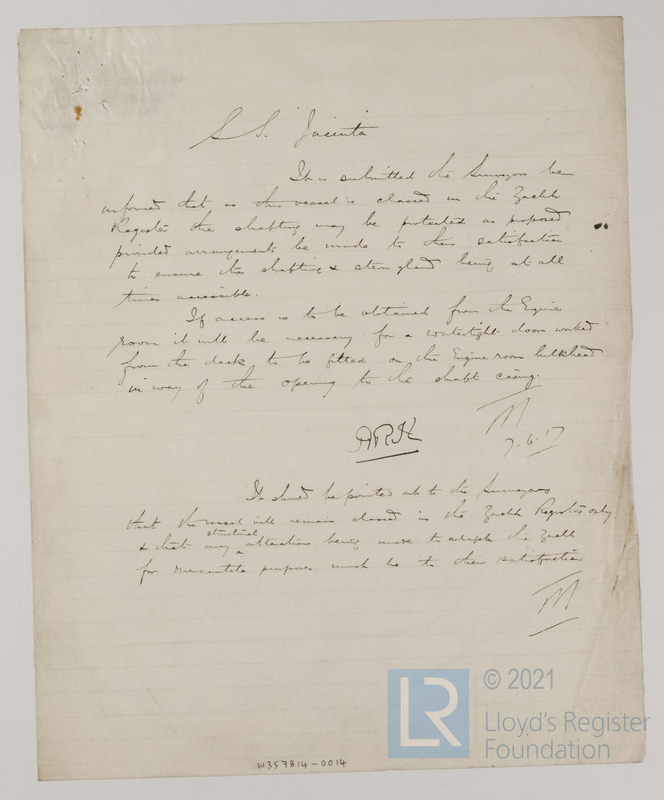 S.S. Jacinta
It is submitted the Surveyors be
informed that as this vessel is classed in the Yacht
Register the shafting may be protected as proposed
provided arrangements be made to their satisfaction
to ensure the shafting & stern gland being at all
times accessible.
If access is to be obtained from the Engine
room it will be necessary for a watertight door worked
from the deck to be fitted on the Engine room bulkhead
in way of the opening to the shaft casing.
ARH
7.6.17
It should be pointed out to the Surveyors
that the vessel will remain classed in the Yacht Register only
structural
& that any alterations being made to adapt the Yacht
for mercantile purposes must be to their satisfaction
W357814-0014
LR
© 2021
Lloyd's Register
Foundation